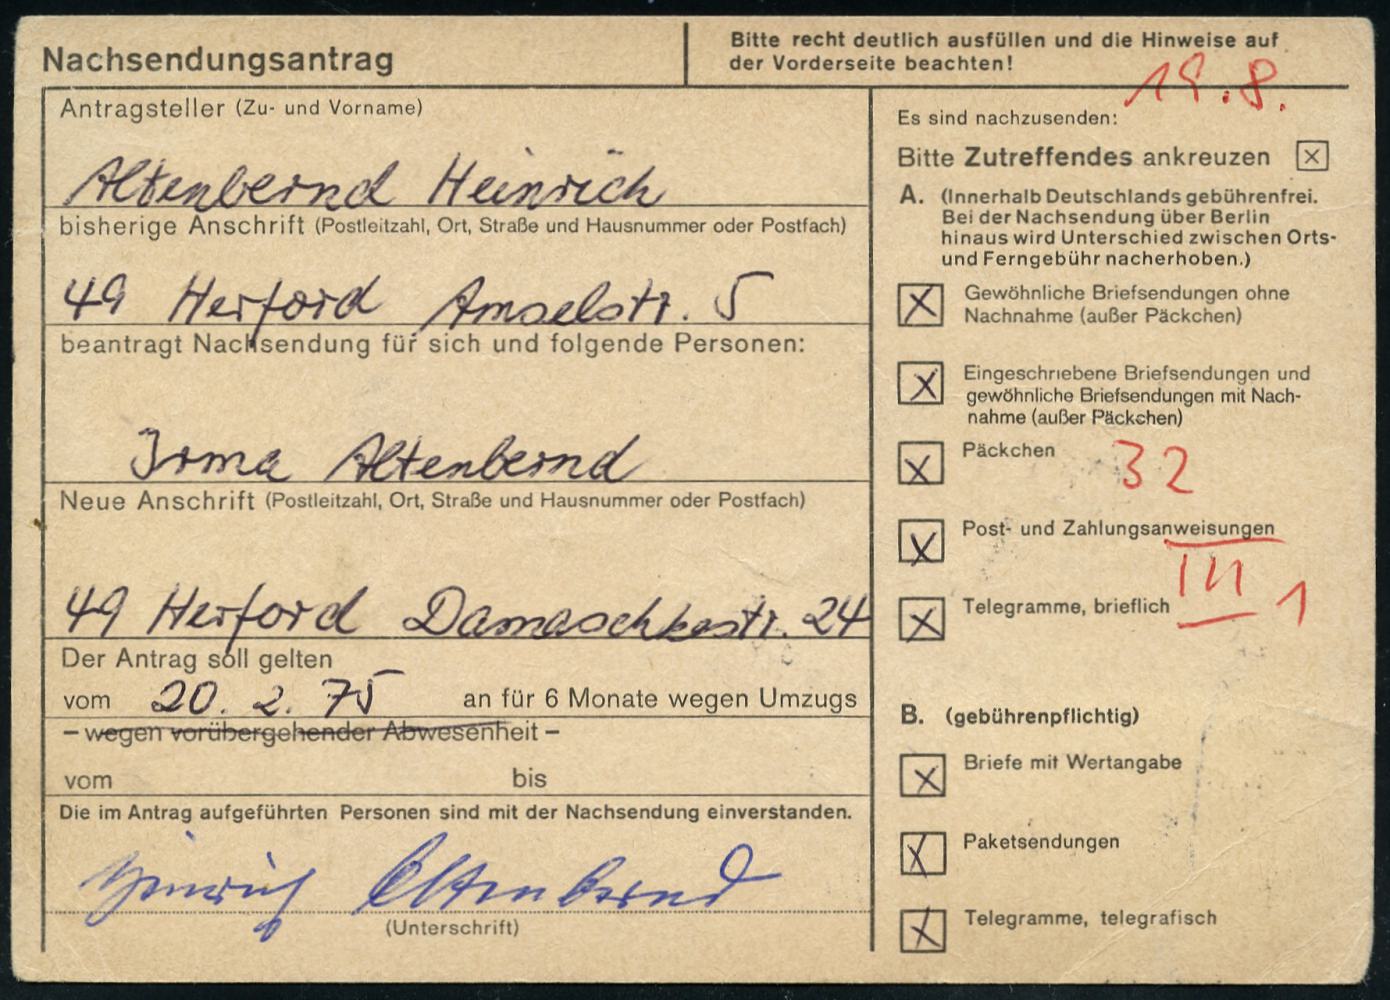 Nachsendungsantrag
Bitte recht deutlich ausfüllen und die Hinweise auf
der Vorderseite beachten!
19.8.
Antragsteller (Zu- und Vorname)
Altenbernd Heinrich
bisherige Anschrift (Postleitzahl, Ort, Straße und Hausnummer oder Postfach)
49 Herford Amselstr. 5
beantragt Nachsendung für sich und folgende Personen:
Irma Altenbernd
Neue Anschrift (Postleitzahl, Ort, Straße und Hausnummer oder Postfach)
49 Herford Damaschkestr. 24
Der Antrag soll gelten
vom 20. 2. 75 an für 6 Monate wegen Umzugs
– wegen vorübergehender Abwesenheit –
vom bis
Die im Antrag aufgeführten Personen sind mit der Nachsendung einverstanden.
Heinrich Altenbernd
(Unterschrift)
Es sind nachzusenden:
Bitte Zutreffendes ankreuzen
A. (Innerhalb Deutschlands gebührenfrei.
Bei der Nachsendung über Berlin
hinaus wird Unterschied zwischen Orts-
und Ferngebühr nacherhoben.)
Gewöhnliche Briefsendungen ohne
Nachnahme (außer Päckchen)
Eingeschriebene Briefsendungen und
gewöhnliche Briefsendungen mit Nach-
nahme (außer Päckchen)
Päckchen 32
Post- und Zahlungsanweisungen
III 1
Telegramme, brieflich
B. (gebührenpflichtig)
Briefe mit Wertangabe
Paketsendungen
Telegramme, telegrafisch